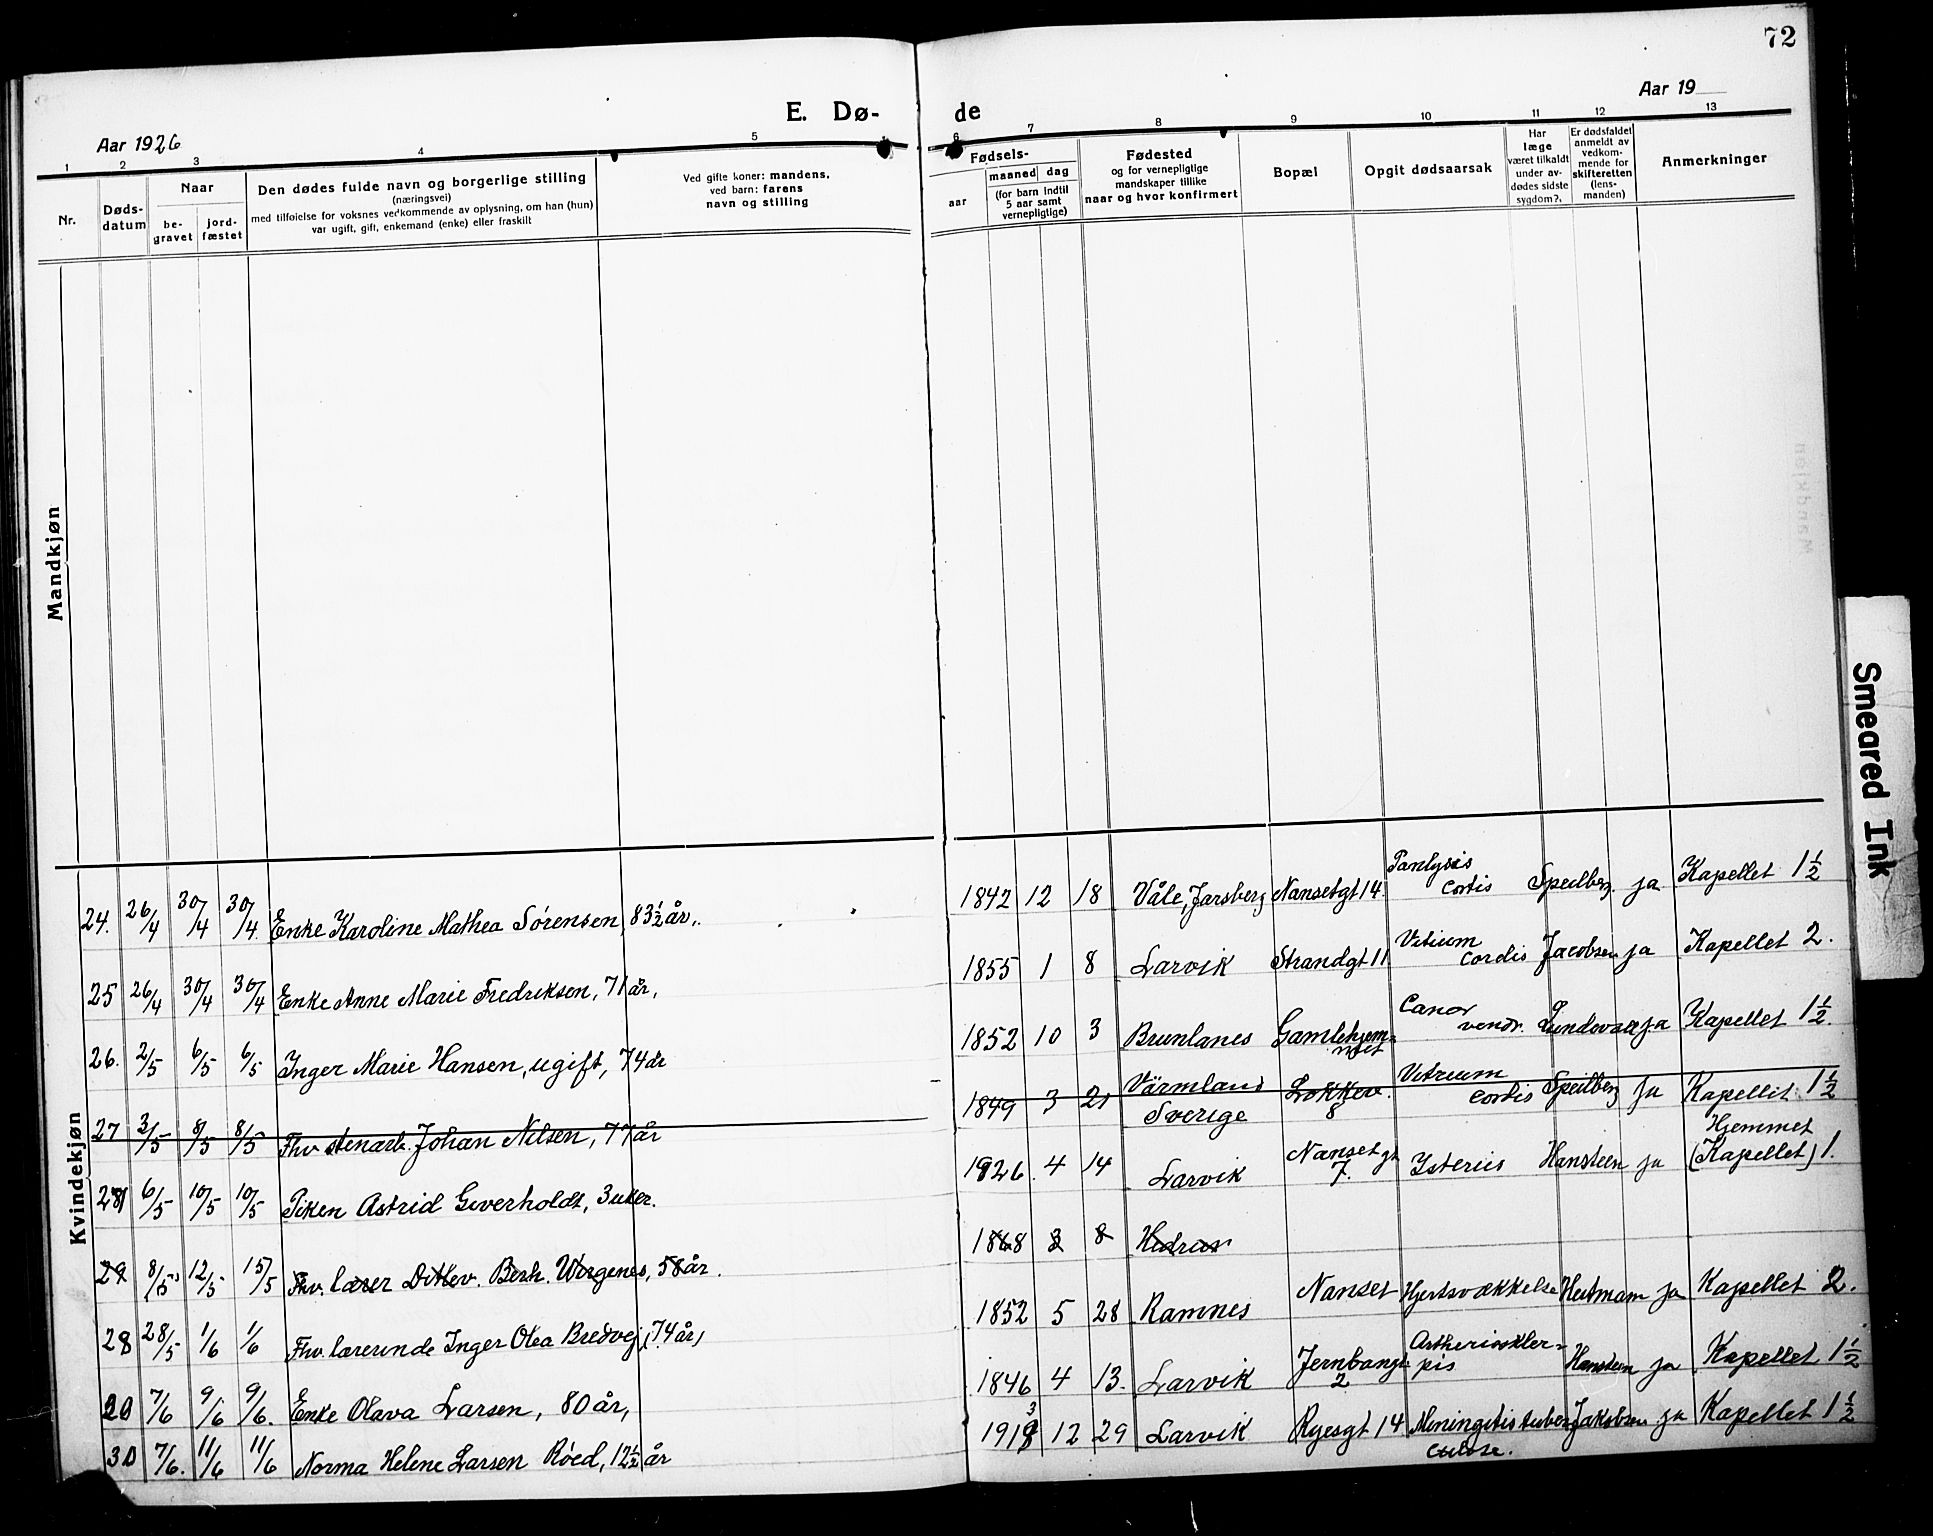 72
E. Dø- de
Aar 1926
Aar 19
1 2 3 4 5 6 7 8 9 10 11 12 13
Nr.
Døds-
datum
Naar
be-
gravet
jord-
fæstet
Den dødes fulde navn og borgerlige stilling
(næringsvei)
med tilføielse for voksnes vedkommende av oplysning, om han (hun)
var ugift, gift, enkemand (enke) eller fraskilt
Ved gifte koner: mandens,
ved barn: farens
navn og stilling
Fødsels-
aar
maaned dag
(for barn indtil
5 aar samt
vernepligtige)
Fødested
og for vernepligtige
mandskaper tillike
naar og hvor konfirmert
Bopæl
Opgit dødsaarsak
Har
læge
været tilkaldt
under av-
dødes sidste
sygdom?.
Er dødsfaldet
anmeldt av
vedkom-
mende for
skifteretten
(lens-
manden)
Anmerkninger
Mandkjøn
Kvindekjøn
24. 26/4 30/4 30/4. Enke Karoline Mathea Sørensen, 83 1/2 år, 1842 12 18 Våle, Jarsberg Nansetgt 14. cortis Speilberg ja Kapellet 1 1/2
25 26/4 30/4 30/4 Enke Anne Marie Fredriksen, 71 år, 1855 1 8 Larvik Strandgt 11 Vitium cordis Jacobsen ja Kapellet 2.
26. 2/5 6/5 6/5 Inger Marie Hansen, ugift, 74 år 1852 10 3 Brunlanes Gamlehjem- met ja Kapellet 1 1/2.
27 3/5 8/5 8/5 Fhv stenarb. Johan Nilsen, 77 år 1849 3 21 Värmland Sverige 8 cordis Speilberg ja Kapellet 1 1/2
28 6/5 10/5 10/5 Piken Astrid Geverholdt, 3 uker. 1926. 4 14 Larvik Nansetgt 7. Isterus Hansteen ja Hjemmet (Kapellet) 1.
29 8/5 12/5 15/5 Fhv. lærer Ditlev. Berh. Wirgenes, 58 år. 1868 3 8 Hedrum
28 28/5 1/6 1/6 Fhv. lærerinde Inger Olea Bredvej, (74 år) 1852 5 28 Ramnes Nanset Hjertsvækkelse ja Kapellet 2.
29 7/6 9/6 9/6. Enke Olava Larsen, 80 år, 1846 4 13. Larvik Jernbangt 2 Hansteen ja Kapellet 1 1/2
30 7/6. 11/6 11/6 Norma Helene Larsen Røed, 12 1/2 år 1913 12 29 Larvik Ryesgt 14 Meningitis tuber- culose. Jakobsen ja Kapellet 1 1/2
Smeared Ink